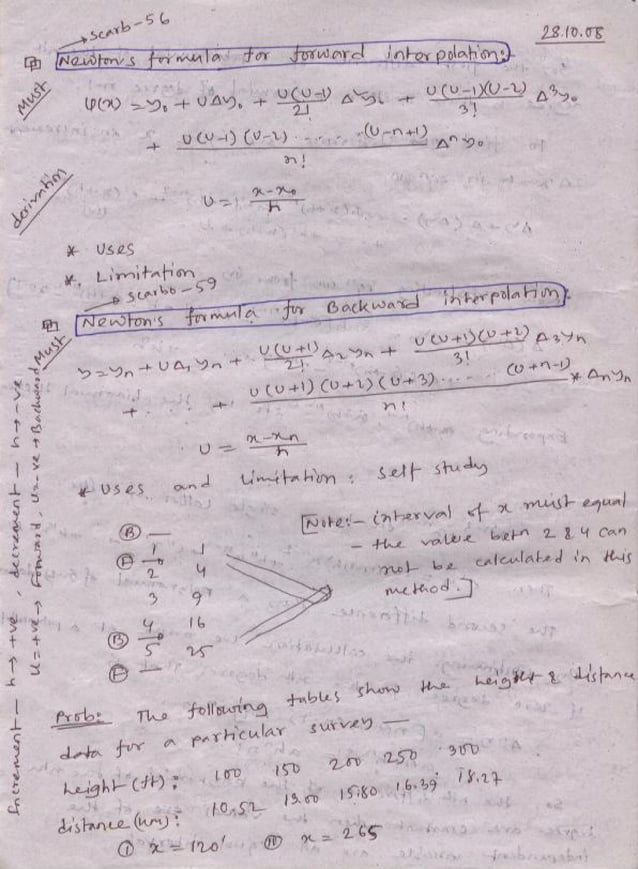 scarb-56
28.10.08
Newton's formula for forward interpolation:
Must
φ(x) = y₀ + UΔy₀ + U(U-1)/2! Δ²y₀ + U(U-1)(U-2)/3! Δ³y₀
+ U(U-1)(U-2)......(U-n+1)/n! Δⁿy₀
derivation
U = x-x₀/h
* Uses
* Limitation
scarbo-59
Newton's formula for Backward interpolation:
Must
y = yₙ + UΔ₁yₙ + U(U+1)/2! Δ₂yₙ + U(U+1)(U+2)/3! Δ₃yₙ
+ ... + U(U+1)(U+2)(U+3)......(U+n-1)/n! * Δₙyₙ
U = x-xₙ/h
* Uses and limitation : self study
Increment — h → +ve, decrement — h → -ve
U = +ve → Forward, U = -ve → Backward
[Note:- interval of x must equal
- the value betn 2 & 4 can
not be calculated in this
method.]
(B) —
1 1
(F)
2 4
3 9
4 16
(B)
5 25
(F) —
Prob: The following tables show the height & distance
data for a particular survey —
height (ft) : 100 150 200 250 300
distance (km) : 10.52 13.00 15.80 16.39 18.27
(i) x = 120' (ii) x = 265